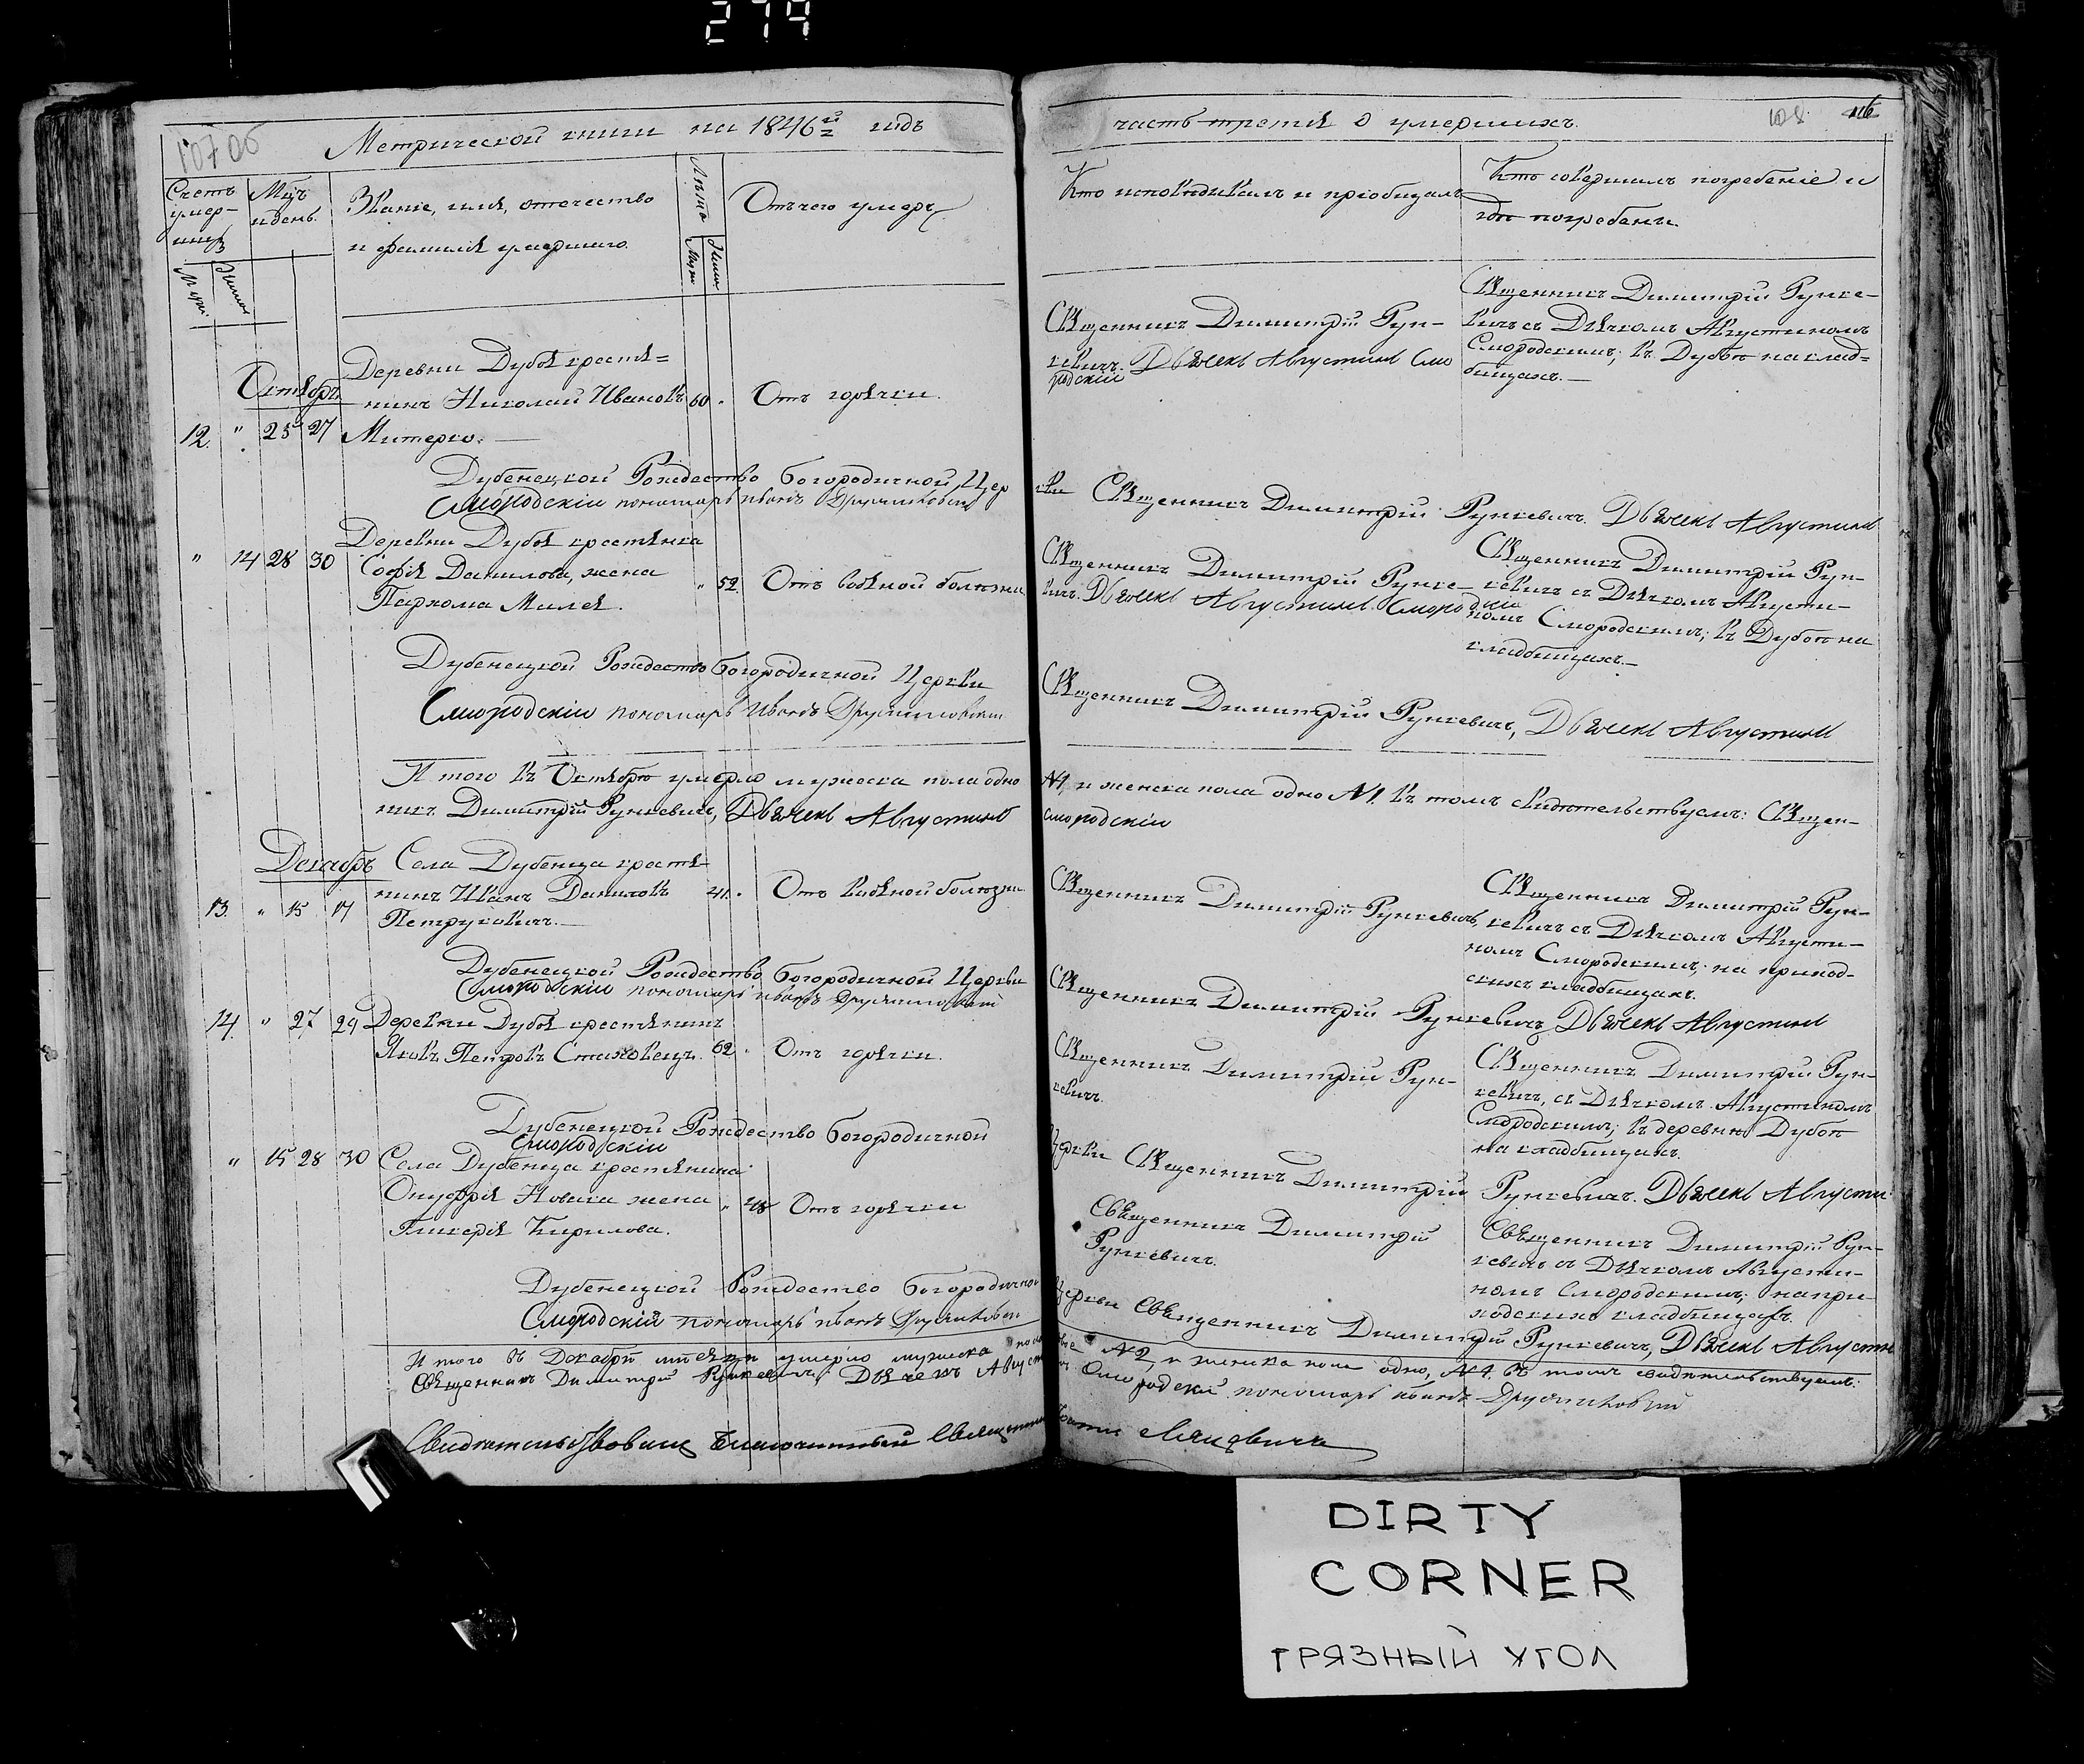 Метрической книги на 1846й годъ
часть третія о умершихъ.
107 об
108
116
Счетъ умер-шихъ
Мцъ и день.
Званіе, имя, отчество
и фамилія умершаго.
Лѣта
Отъ чего умеръ
Кто исповѣдывалъ и пріобщалъ
Кто совершалъ погребеніе и
гдѣ погребены.
Октябрь
12. " 25 27
Деревни Дубоя крестья=
нинъ Николай Ивановъ
Митерко.
60 .
Отъ горячки.
Священникъ Димитрій Рун-
кевичъ. Дьячекъ Августинъ Смо
родскій
Священникъ Димитрій Рунке-
вичъ съ Дьячкомъ Августиномъ
Смородскимъ; въ Дубоѣ на клад=
бищахъ.
Дубенецкой Рождество Богородичной Цер
кви Священникъ Димитрій Рункевичъ. Дьячекъ Августинъ
Смородскій пономарь Иванъ
" 14 28 30
Деревни Дубоя крестьянка
Софія Данилова, жена
Пархома Милея.
" 52.
Отъ водяной болѣзни
Священникъ Димитрій Рунке-
вичъ. Дьячекъ Августинъ Смородскій
Священникъ Димитрій Рун-
кевичъ съ Дьячкомъ Августи-
номъ Смородскимъ; въ Дубоѣ на
кладбищахъ.
Дубенецкой Рождество Богородичной Церкви
Священникъ Димитрій Рункевичъ, Дьячекъ Августинъ
Смородскій пономарь Иванъ
И того въ Октябрѣ умерло мужеска пола одно
№1, и женска пола одно №1. въ томъ свидѣтельствуемъ: Священ-
никъ Димитрій Рункевичъ, Дьячекъ Августинъ
Смородскій
Декабрь
13. " 15 17
Села Дубенца крестья-
нинъ Иванъ Даниловъ
Петруковичъ.
41 .
Отъ водяной болѣзни
Священникъ Димитрій Рункевичъ,
Священникъ Димитрій Рун-
кевичъ съ Дьячкомъ Августи-
номъ Смородскимъ; на приход-
скихъ кладбищахъ.
Дубенецкой Рождество Богородичной Церкви
Священникъ Димитрій Рункевичъ Дьячекъ Августинъ
Смородскій пономарь Иванъ
14. " 27 29
Деревни Дубоя крестьянинъ
Яковъ Петровъ Стаховецъ.
62 .
Отъ горячки.
Священникъ Димитрій Рун-
кевичъ.
Священникъ Димитрій Рун-
кевичъ, съ Дьячкомъ Августиномъ
Смородскимъ; въ деревнѣ Дубоѣ
на кладбищахъ.
Дубенецкой Рождество Богородичной
Церкви Священникъ Димитрій Рункевичъ. Дьячекъ Августи
Смородскій
" 15 28 30
Села Дубенца крестьянина
Онуфрія Новака жена
Гликерія Кирилова.
" 48
Отъ горячки
Священникъ Димитрій
Рункевичъ.
Священникъ Димитрій Рун-
кевичъ съ Дьячкомъ Августи-
номъ Смородскимъ; на при-
ходскихъ кладбищахъ.
Дубенецкой Рождество Богородичной
Церкви Священникъ Димитрій Рункевичъ, Дьячекъ Августи
Смородскій пономарь Иванъ
И того въ Декабрѣ мѣсяцѣ умерло мужеска пола
№2, и женска пола одно, №1. въ томъ свидѣтельствуемъ:
Священникъ Димитрій Рункевичъ, Дьячекъ Август
Смородскій пономарь Иванъ
Свидѣтельствовалъ Благочинный Священникъ
DIRTY
CORNER
ГРЯЗНЫЙ УГОЛ